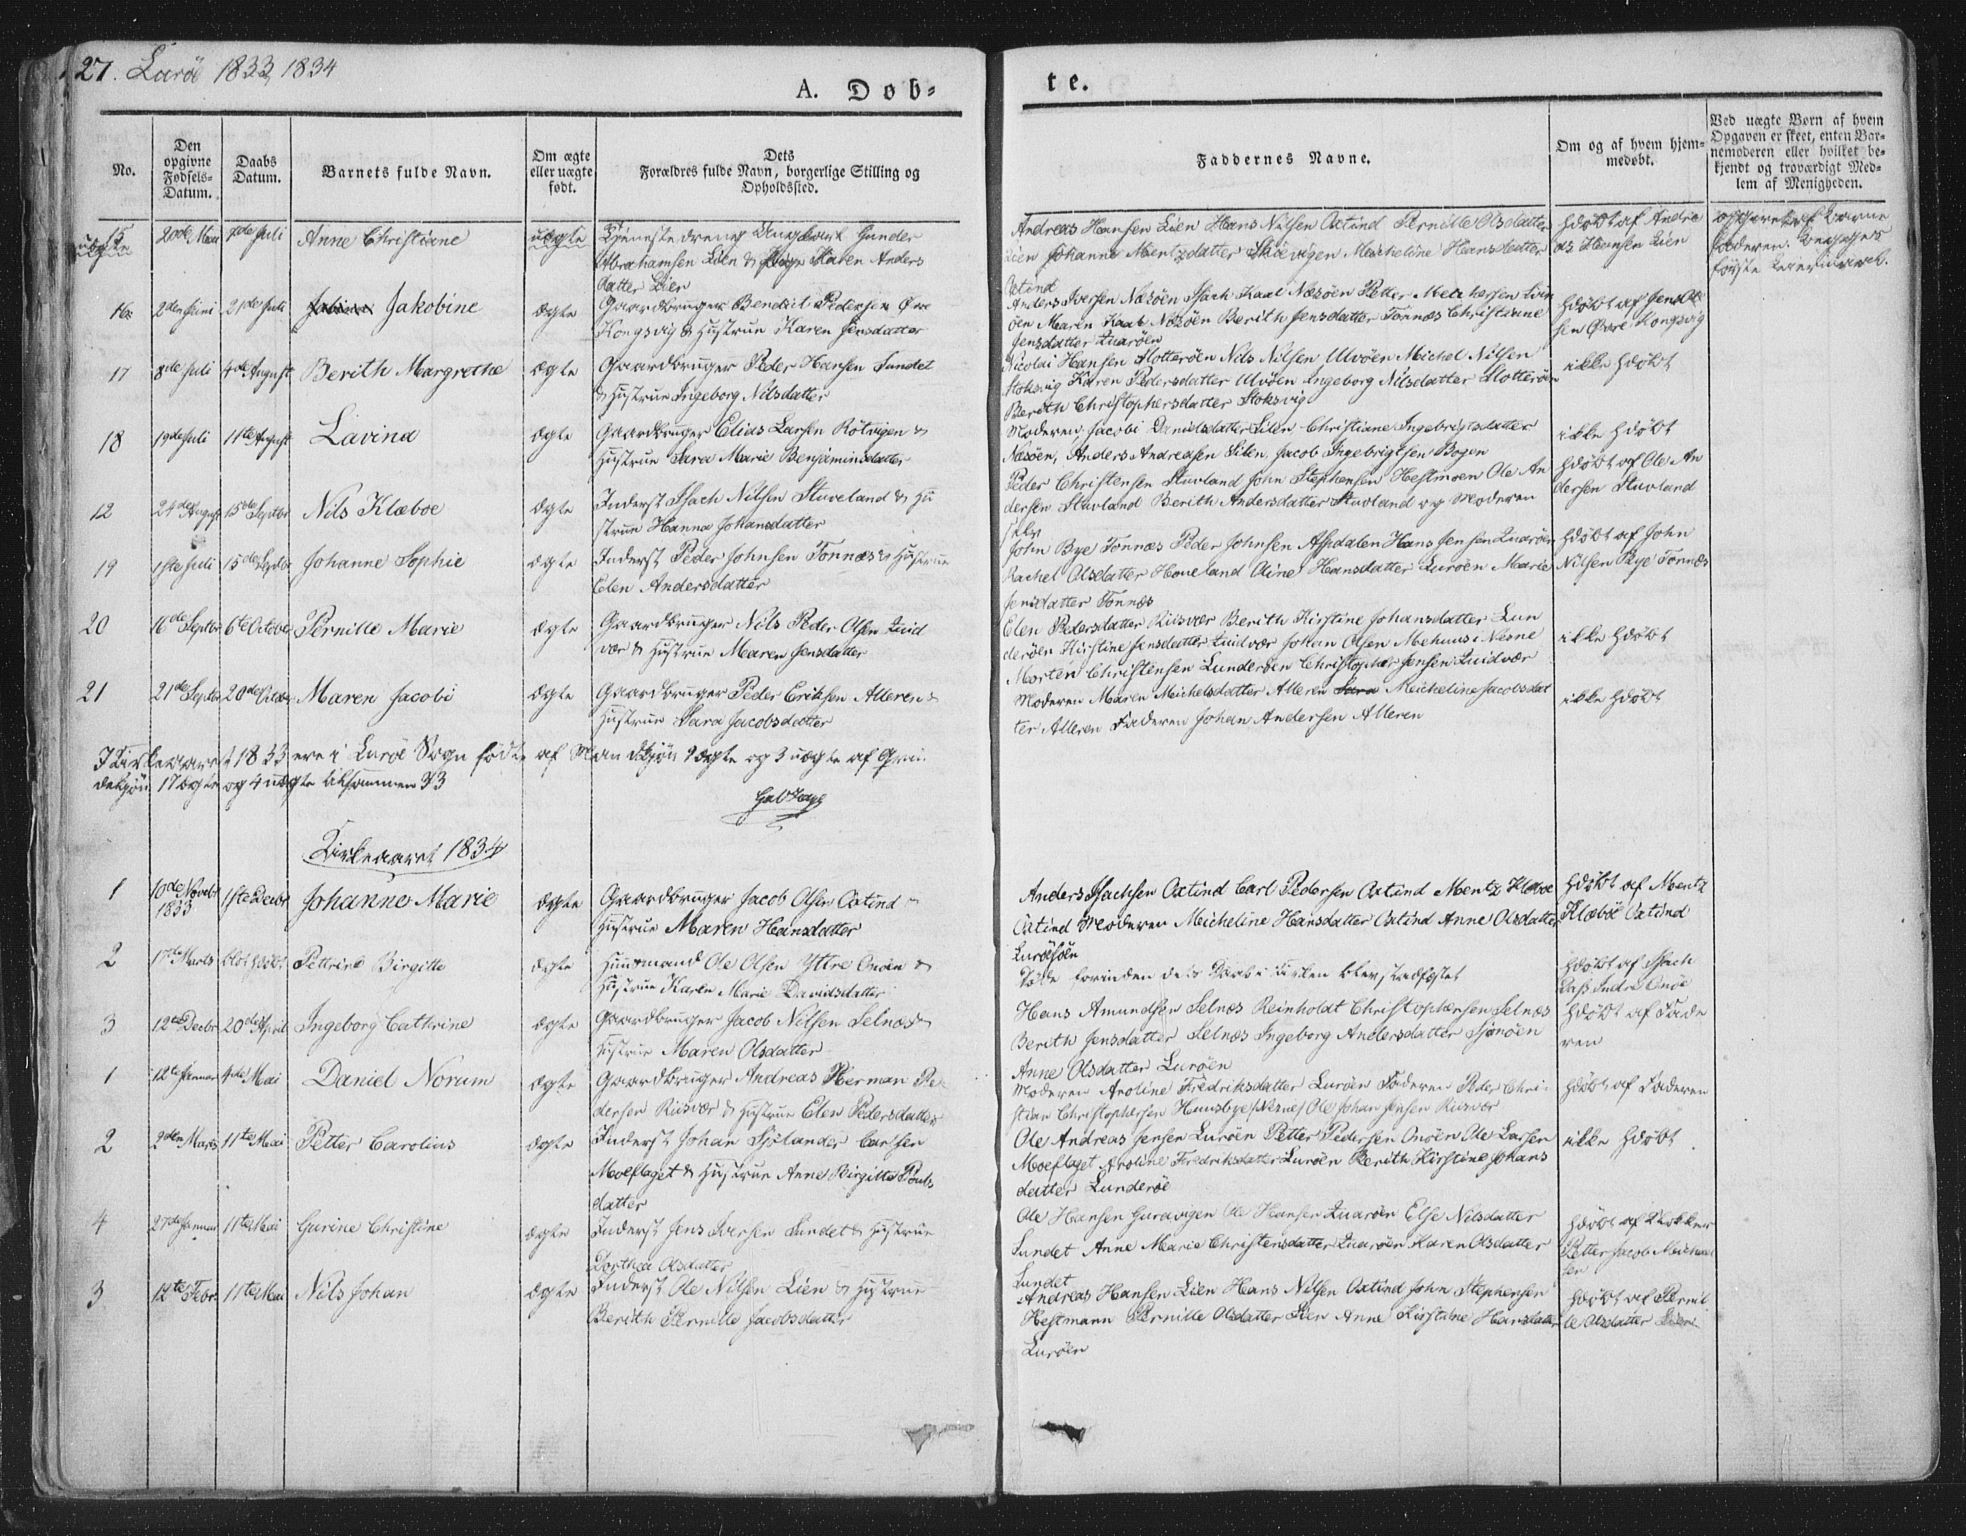 27. Lurøe 1833, 1834
A. Dob-
te.
No.
Den opgivne Fødsels-Datum.
Daabs Datum.
Barnets fulde Navn.
Om ægte eller uægte født.
Dets Forældres fulde Navn, borgerlige Stilling og Opholdssted.
Faddernes Navne.
Om og af hvem hjem-medøbt.
Ved uægte Børn af hvem Opgaven er skeet, enten Bar-nemoderen eller hvilket be-kjendt og troværdigt Med-lem af Menigheden.
15 Anne Christiane uægte Tjenestedreng Ungkarl Gunder
Abrahamsen Lien & Pige Karen Anders
datter Lien
Andreas Hansen Lien Hans Nilsen Oxtind Pernille Olsdatter
Lien Johanne Mentzdatter Micheline Hansdatter
Oxtind
hdøbt af Andre
as Hansen Lien
16 2den Juni 21de Juli Jakobine ægte Gaardbruger Bendict Pedersen Øvre
Kongsvig & Hustrue Karen Jensdatter
Anders Iversen Næsøen Isach Kaal Næsøen Petter
øen Maren Kaal Næsøen Berith Jensdatter Tonnæs Christiane
Jensdatter Luarøen
hdøbt af Jens Ol
sen Øvre Kongsvig
17 8de Juli 4de August Berith Margrethe ægte Gaardbruger Peder Hansen Sundet
& Hustrue Ingeborg Nilsdatter
Nicolai Hansen Slotterøen Nils Nilsen Ulvøen Michel Nilsen
Stoksvig Karen Pedersdatter Ulvøen Ingeborg Nilsdatter Slotterøen
Berith Christophersdatter Stoksvig
ikke hdøbt
18 19de Juli 11te August Lavina ægte Gaardbruger Elias Larsen Rølvigen &
Hustrue Sara Marie Benjaminsdatter
Moderen, Jacobi Danielsdatter Silen Christiane Ingebrigtsdatter
Næsøen, Anders Andreasen Silen, Jacob Ingebrigtsen Bogen
ikke hdøbt
12 24de August 15de Septbr Nils Klæboe ægte Inderst Isach Nilsen Stuveland & Hu
strue Hanna Johansdatter
Peder Christensen Stuvland John Stephensen Hestmoen Ole An
dersen Stuvland Berith Andersdatter Stuvland og Moderen
selv
hdøbt af Ole An
dersen Stuvland
19 1ste Juli 15de Septbr Johanne Sophie ægte Inderst Peder Johnsen Tonnæs & Hustrue
Elen Andersdatter
John Bye Tonnæs Peder Johnsen Aspdalen Hans Jensen Luarøen
Rachel Olsdatter Hoveland Oline Hansdatter Lurøen Marie
Jensdatter Tonnæs
hdøbt af John
Nilsen Bye Tonnæs
20 16de Septbr 6te October Pernille Marie ægte Gaardbruger Nils Peder Olsen Quid
vær & Hustrue Maren Jensdatter
Elen Pedersdatter Riisvær Berith Kirstine Johansdatter Lun
derøen Kirstine Jensdatter Quidvær Johan Olsen Mehuus i Nesne
Morten Christensen Lunderøen Christopher Jensen Quidvær
ikke hdøbt
21 21de Septbr 20de Octobr Maren Jacobi ægte Gaardbruger Peder Eriksen Alteren &
Hustrue Sara Jacobsdatter
Moderen Maren Michelsdatter Alteren Sara Micheline Jacobsdat
ter Alteren Faderen Johan Andersen Alteren
ikke hdøbt
I Kirkeaaret 1833 ere i Lurøe Sogn fødte af Mandkjøn 9 ægte og 3 uægte af Qvin
dekjøn 17 ægte og 4 uægte tilsammen 33
Kirkeaaret 1834
1 10de Novebr 1833 1ste Decbr Johanne Marie ægte Gaardbruger Jacob Olsen Oxtind &
Hustrue Maren Hansdatter
Anders Isachsen Oxtind Carl Pedersen Oxtind Mentz Klæboe
Oxtind Moderen Micheline Hansdatter Oxtind Anne Olsdatter
hdøbt af Mentz
Klæboe Oxtind
2 17de Marts Pettrine Birgitte ægte Huusmand Ole Olsen Yttre Onøen &
Hustrue Karen Marie Davidsdatter
Døde forinden dets Daab i Kirken blev stadfæstet
hdøbt af Isach
Indre Onøe
3 12te Decbr 20de April Ingeborg Cathrine ægte Gaardbruger Jacob Nilsen Selnæs &
Hustrue Maren Olsdatter
Hans Amundsen Selnæs Reinholdt Christophersen Selnæs
Berith Jensdatter Selnæs Ingeborg Andersdatter Sjonøen
Anne Olsdatter Lurøen
hdøbt af Fade
ren
1 12te Januar 4de Mai Daniel Norum ægte Gaardbruger Andreas Herman Pe
dersen Riisvær & Hustrue Elen Pedersdatter
Moderen Aroline Fredriksdatter Lurøen Faderen Peder Chri
stian Christophersen Huusbye (Nesne) Ole Johan Jensen Riisvær
hdøbt af Faderen
2 2den Marts 11te Mai Petter Carolius ægte Inderst Johan Sjølander Carlsen
Moeflaget & Hustrue Anne Birgitte Pouls
datter
Ole Andreas Jensen Lurøen Petter Pedersen Onøen Ole Larsen
Moeflaget Aroline Fredriksdatter Lurøen Berith Kirstine Johans
datter Lunderøe
ikke hdøbt
4 27de Januar 11te Mai Gurine Christine ægte Inderst Jens Iversen Sundet & Hustrue
Dorthea Olsdatter
Ole Hansen Guravigen Ole Hansen Luarøen Else Nilsdatter
Sundet Anne Marie Christensdatter Luarøen Karen Olsdatter
Sundet
hdøbt af Klokker
Petter Jacob Michael
sen
3 12te Febr 11te Mai Nils Johan ægte Inderst Ole Nilsen Lien & Hustrue
Berith Pernille Jacobsdatter
Andreas Hansen Lien Hans Nilsen Oxtind John Stephensen
Hestmann Pernille Olsdatter Lien Anne Kirstine Hansdatter
Lurøen
hdøbt af Pernil
le Olsdatter Lien